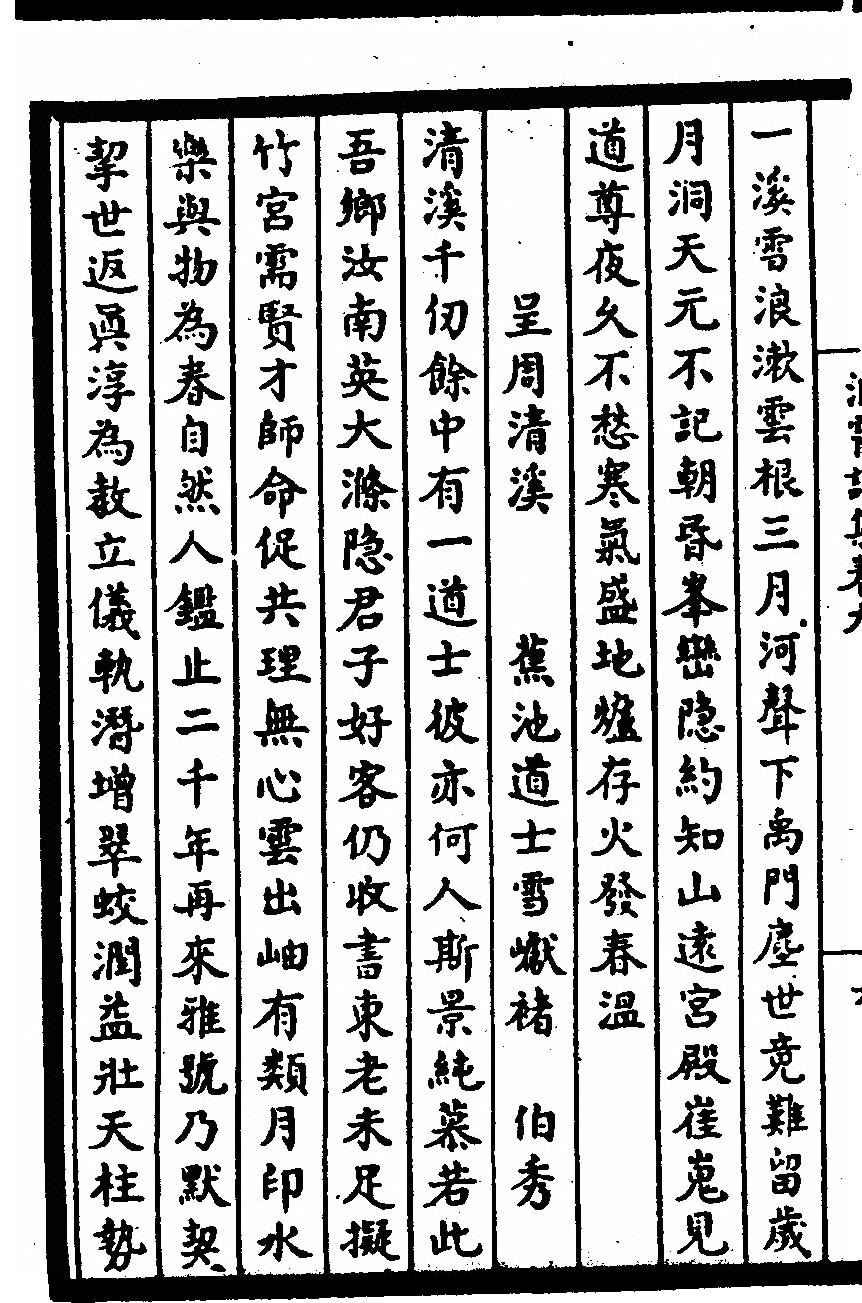 洞霄詩集卷九
一溪雪浪漱雲根三月河聲下禹門塵世竟難留歲
月洞天元不記朝昏峯巒隐約知山遠宮殿崔嵬見
道尊夜久不愁寒氣盛地爐存火發春溫
呈周清溪 蕉池道士雪巘褚 伯秀
清溪千仞餘中有一道士彼亦何人斯景純慕若此
吾鄉汝南英大滌隐君子好客仍收書東老未足擬
竹宮需賢才師命促共理無心雲出岫有類月印水
樂與物為春自然人鑑止二千年再來雅號乃默契
挈世返眞淳為教立儀執潛增翠蛟潤益壯天柱勢